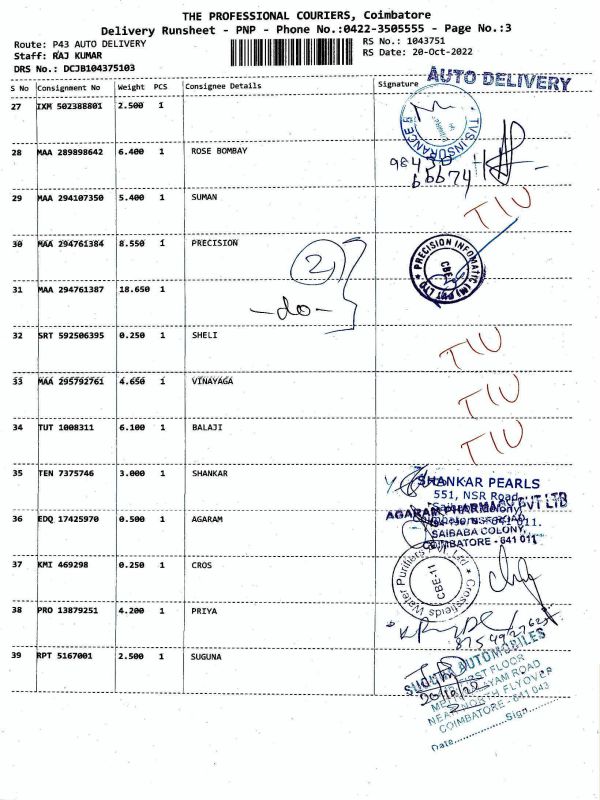 THE PROFESSIONAL COURIERS, Coimbatore
Delivery Runsheet - PNP - Phone No.:0422-3505555 - Page No.:3
Route: P43 AUTO DELIVERY
RS No.: 1043751
Staff: RAJ KUMAR
RS Date: 20-Oct-2022
DRS No.: DCJB104375103
AUTO DELIVERY
S No Consignment No Weight PCS Consignee Details Signature
27 IXM 502388801 2.500 1
TVS INSURANCE
28 MAA 289898642 6.400 1 ROSE BOMBAY
29 MAA 294107350 5.400 1 SUMAN
TIU
30 MAA 294761384 8.550 1 PRECISION
2
PRECISION INFOMATIC (M) PVT LTD
CBE
31 MAA 294761387 18.650 1
-do-
32 SRT 592506395 0.250 1 SHELI
TIU
33 MAA 295792761 4.650 1 VINAYAGA
TIU
34 TUT 1008311 6.100 1 BALAJI
TIU
35 TEN 7375746 3.000 1 SHANKAR
SHANKAR PEARLS
551, NSR Road,
Saibaba Colony,
36 EDQ 17425970 0.500 1 AGARAM
AGARAM PHARMA PVT LTD
SAIBABA COLONY,
COIMBATORE - 641 011
37 KMI 469298 0.250 1 CROS
Crossfields Water Purifiers Pvt. Ltd
CBE-11
38 PRO 13879251 4.200 1 PRIYA
39 RPT 5167001 2.500 1 SUGUNA
SUGUNA AUTOMOBILES
FIRST FLOOR
20/10/22
NEAR NORTH FLYOVER
COIMBATORE - 641 043
Date Sign